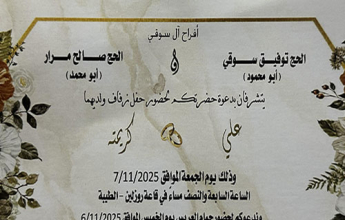 أفراح آل سوقي
الحج توفيق سوقي
(أبو محمود)
و
الحج صالح مرار
(أبو محمد)
يتشرفان بدعوة حضرتكم لحضور حفل زفاف ولديهما
علي
كريمته
وذلك يوم الجمعة الموافق 7/11/2025
الساعة السابعة والنصف مساء في قاعة روزلين - الطيبة
وندعوكم لحضور حمام العريس يوم الخميس الموافق 6/11/2025